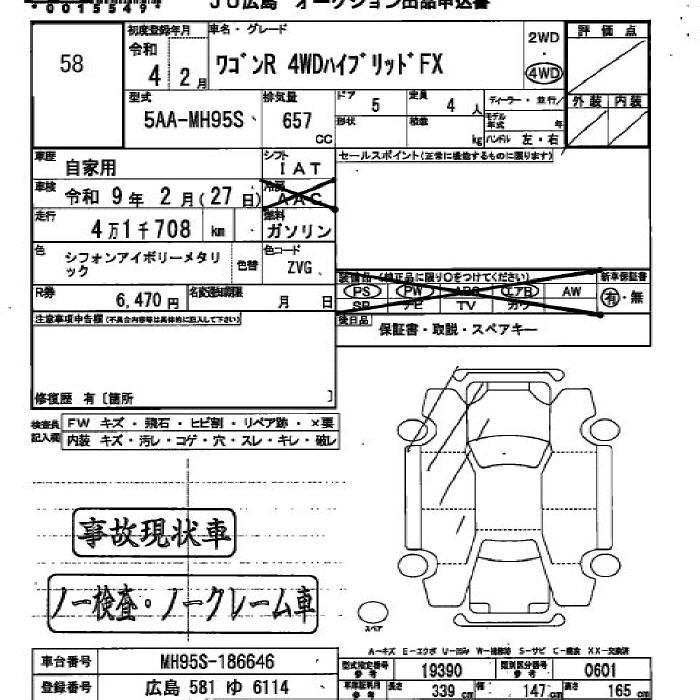 00155494
JU広島 オークション出品申込書
58
初度登録年月 令和 4 2月
車名・グレード ワゴンR 4WDハイブリッドFX
2WD ・ 4WD
評価点
型式 5AA-MH95S
排気量 657 CC
ドア 5
定員 4 人
形状
積載 kg
ディーラー・並行
モデル年式 年
ハンドル 左・右
外装 内装
車歴 自家用
シフト IAT
セールスポイント(正常に機能するものに限ります)
車検 令和 9年 2月(27日)
冷房 AAC
走行 4万1千708 km
燃料 ガソリン
色 シフォンアイボリーメタリック
色替
色コード ZVG
装備品 (純正品に限り○をつけてください)
新車保証書
PS PW ABS エアB AW 有・無
SR ナビ TV カワ
R券 6,470円
名変通知期限 月 日
後日品 保証書・取説・スペアキー
注意事項申告欄(不具合内容等は具体的に記入して下さい)
修復歴 有〔箇所 〕
検査員記入欄
FW キズ・飛石・ヒビ割・リペア跡・×要
内装 キズ・汚レ・コゲ・穴・スレ・キレ・破レ
事故現状車
ノー検査・ノークレーム車
スペア
A−キズ E−エクボ U−凹み W−補修跡 S−サビ C−腐食 XX−交換済
車台番号 MH95S-186646
型式指定番号 参考 19390
類別区分番号 参考 0601
登録番号 広島 581 ゆ 6114
長さ 339 cm 幅 147 cm 高さ 165 cm